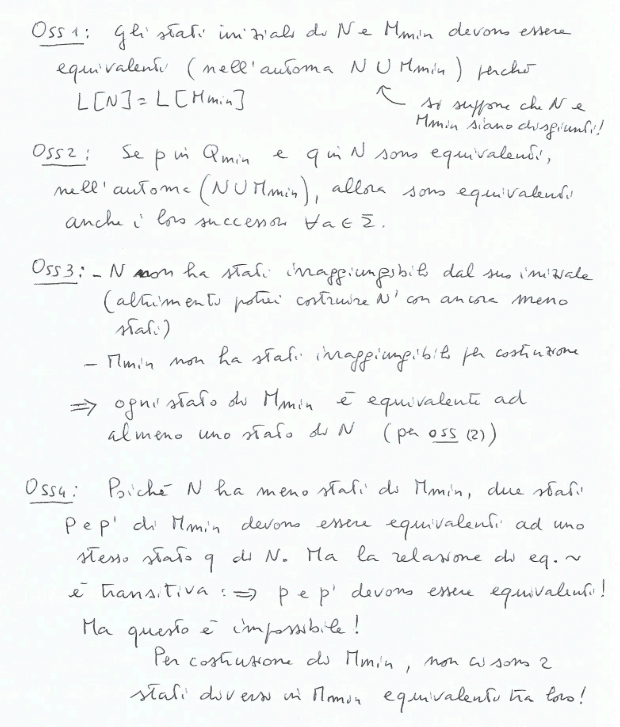 Oss 1: Gli stati iniziali di N e Mmin devono essere
equivalenti (nell'automa N ∪ Mmin) perché
L[N] = L[Mmin]
si suppone che N e
Mmin siano disgiunti!
Oss 2: Se p in Qmin e q in N sono equivalenti,
nell'automa (N ∪ Mmin), allora sono equivalenti
anche i loro successori ∀a ∈ Σ.
Oss 3: - N non ha stati irraggiungibili dal suo iniziale
(altrimenti potrei costruire N' con ancora meno
stati)
- Mmin non ha stati irraggiungibili per costruzione
⇒ ogni stato di Mmin è equivalente ad
almeno uno stato di N (per oss (2))
Oss 4: Poiché N ha meno stati di Mmin, due stati
p e p' di Mmin devono essere equivalenti ad uno
stesso stato q di N. Ma la relazione di eq. ~
è transitiva : ⇒ p e p' devono essere equivalenti!
Ma questo è impossibile!
Per costruzione di Mmin, non ci sono 2
stati diversi in Mmin equivalenti tra loro!